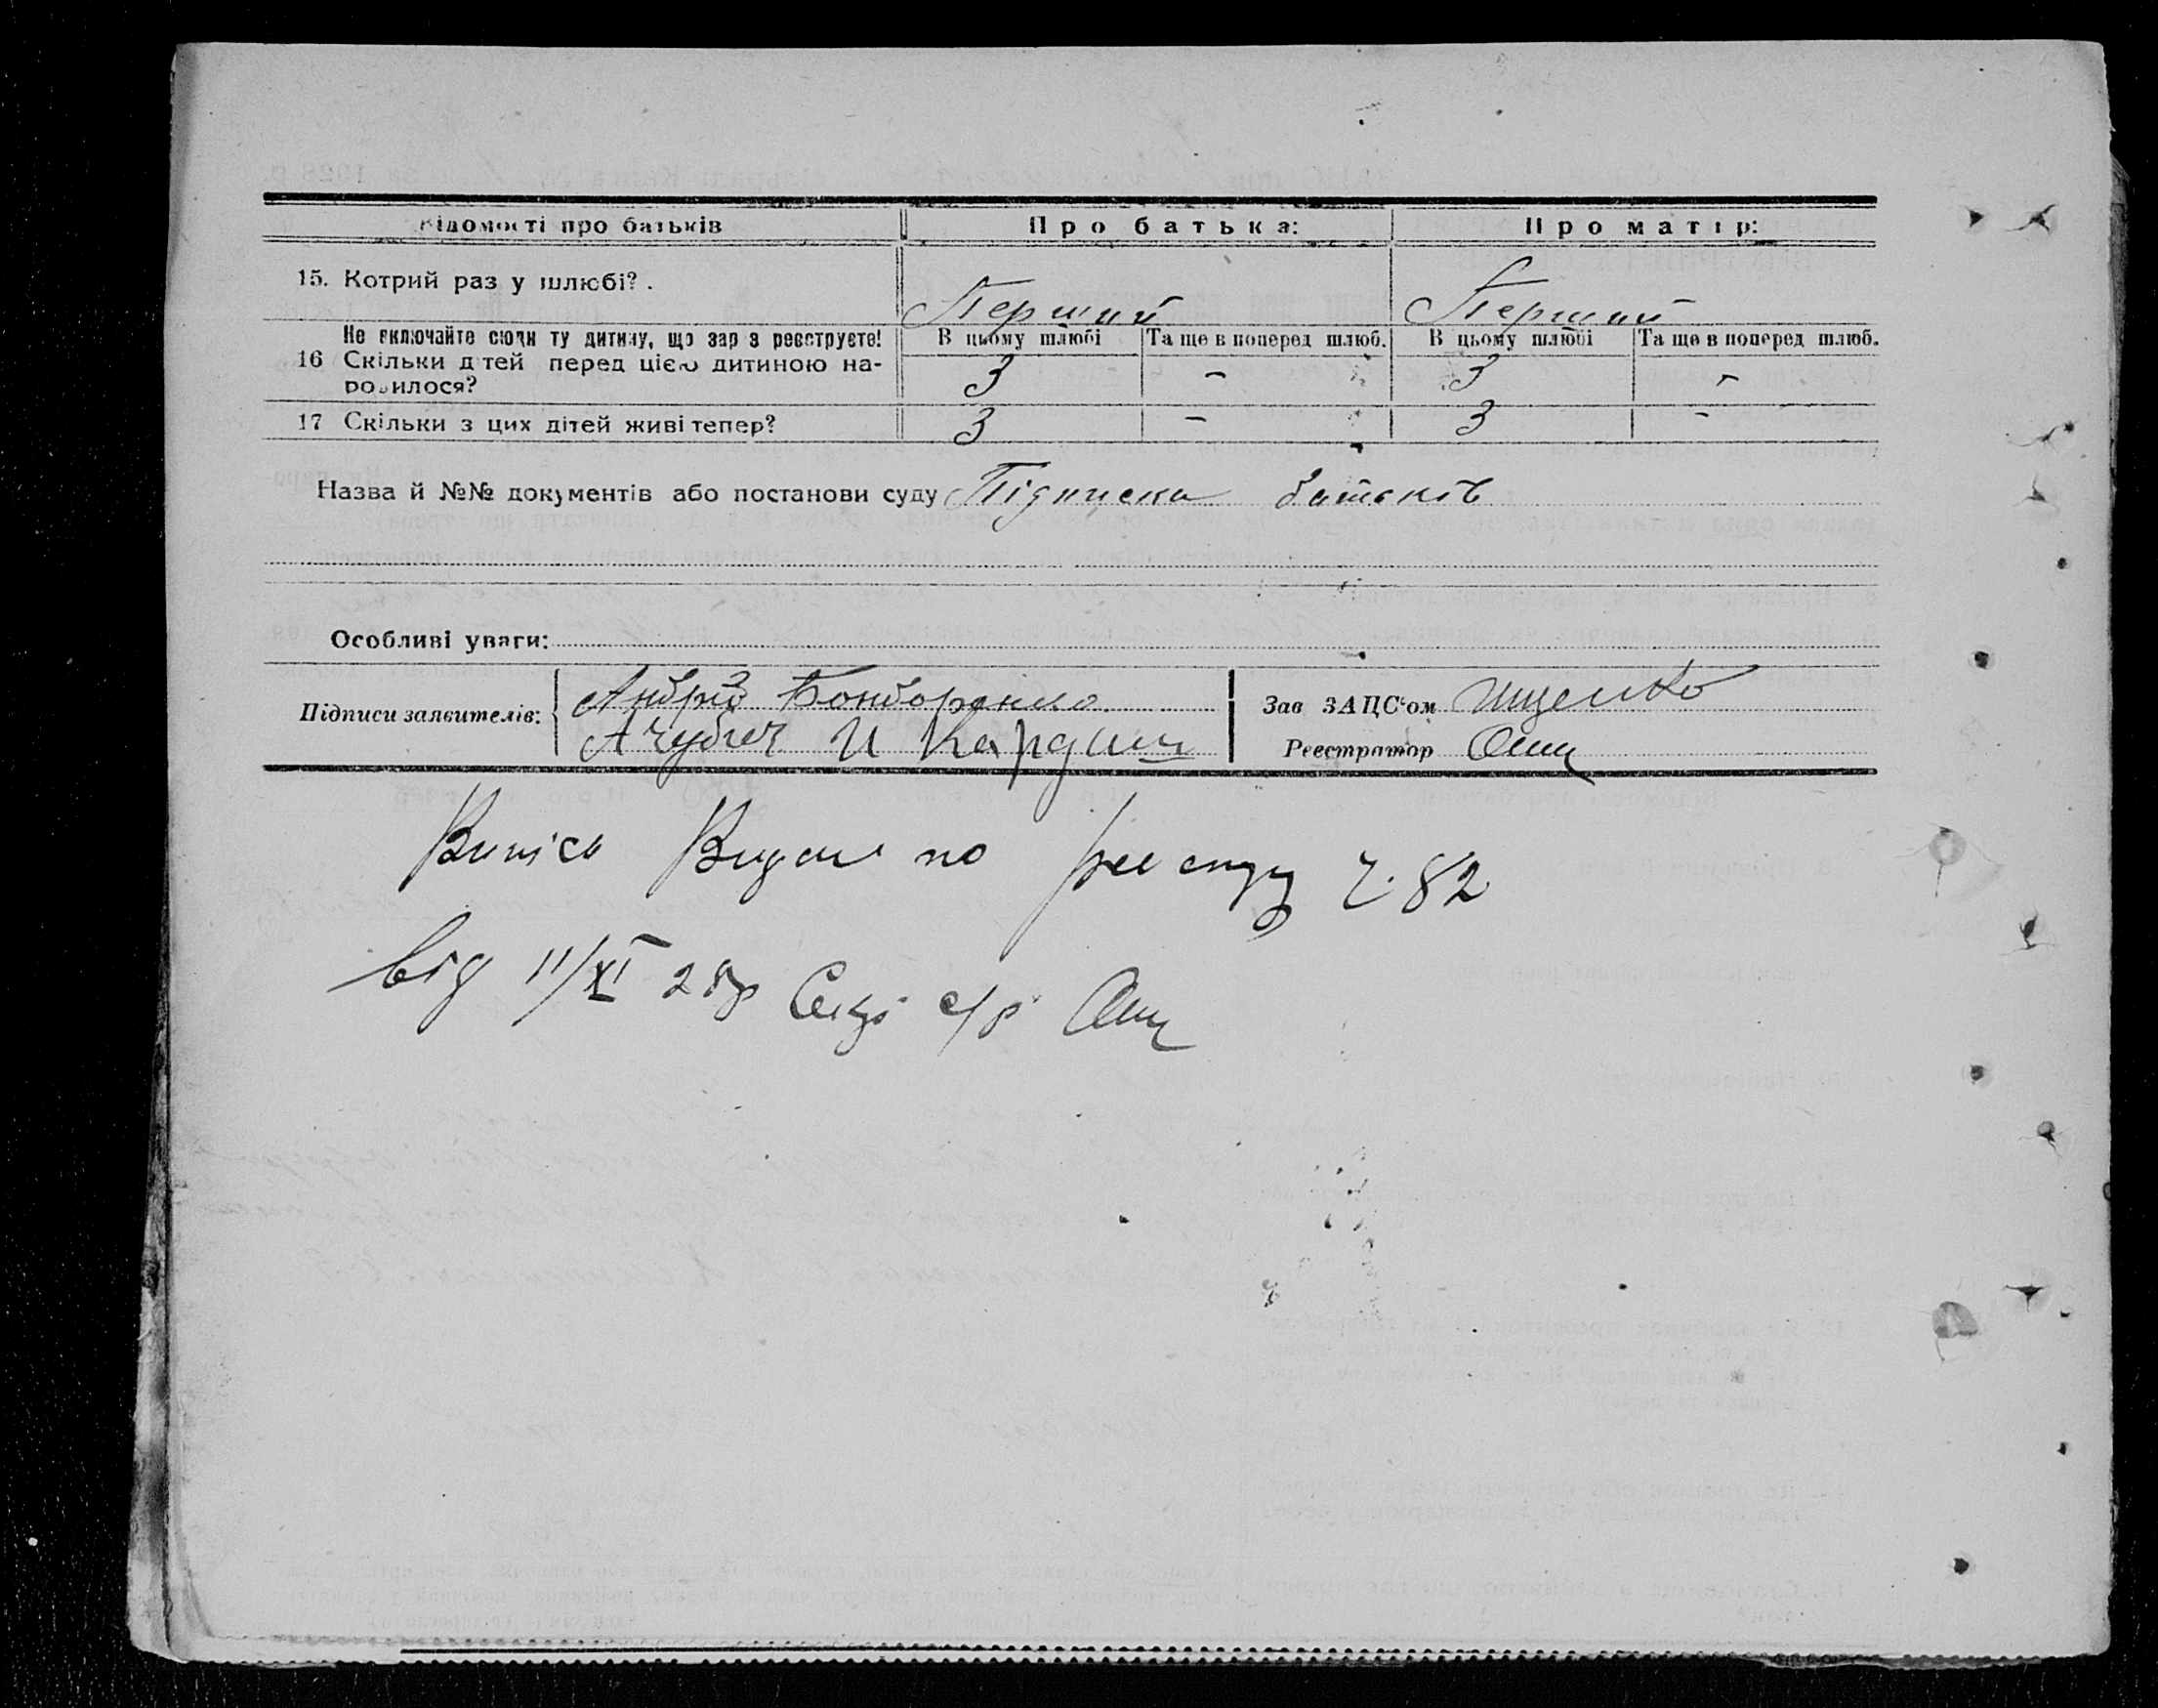 Відомості про батьків Про батька: Про матір:
15. Котрий раз у шлюбі? . Перший Перший
Не включайте сюди ту дитину, що зараз реєструєте! В цьому шлюбі Та ще в поперед шлюб. В цьому шлюбі Та ще в поперед шлюб.
16 Скільки дітей перед цією дитиною на- 3 - 3 -
родилося?
17 Скільки з цих дітей живі тепер? 3 - 3 -
Назва й №№ документів або постанови суду Підписка батьків
Особливі уваги:
Підписи заявителів: Андрій Бондаренко Зав ЗАЦС'ом Ищенко
И Кардаш Реєстратор
Випісь Видано по реєстру ч. 82
від 11/XI 28р Секр с/р